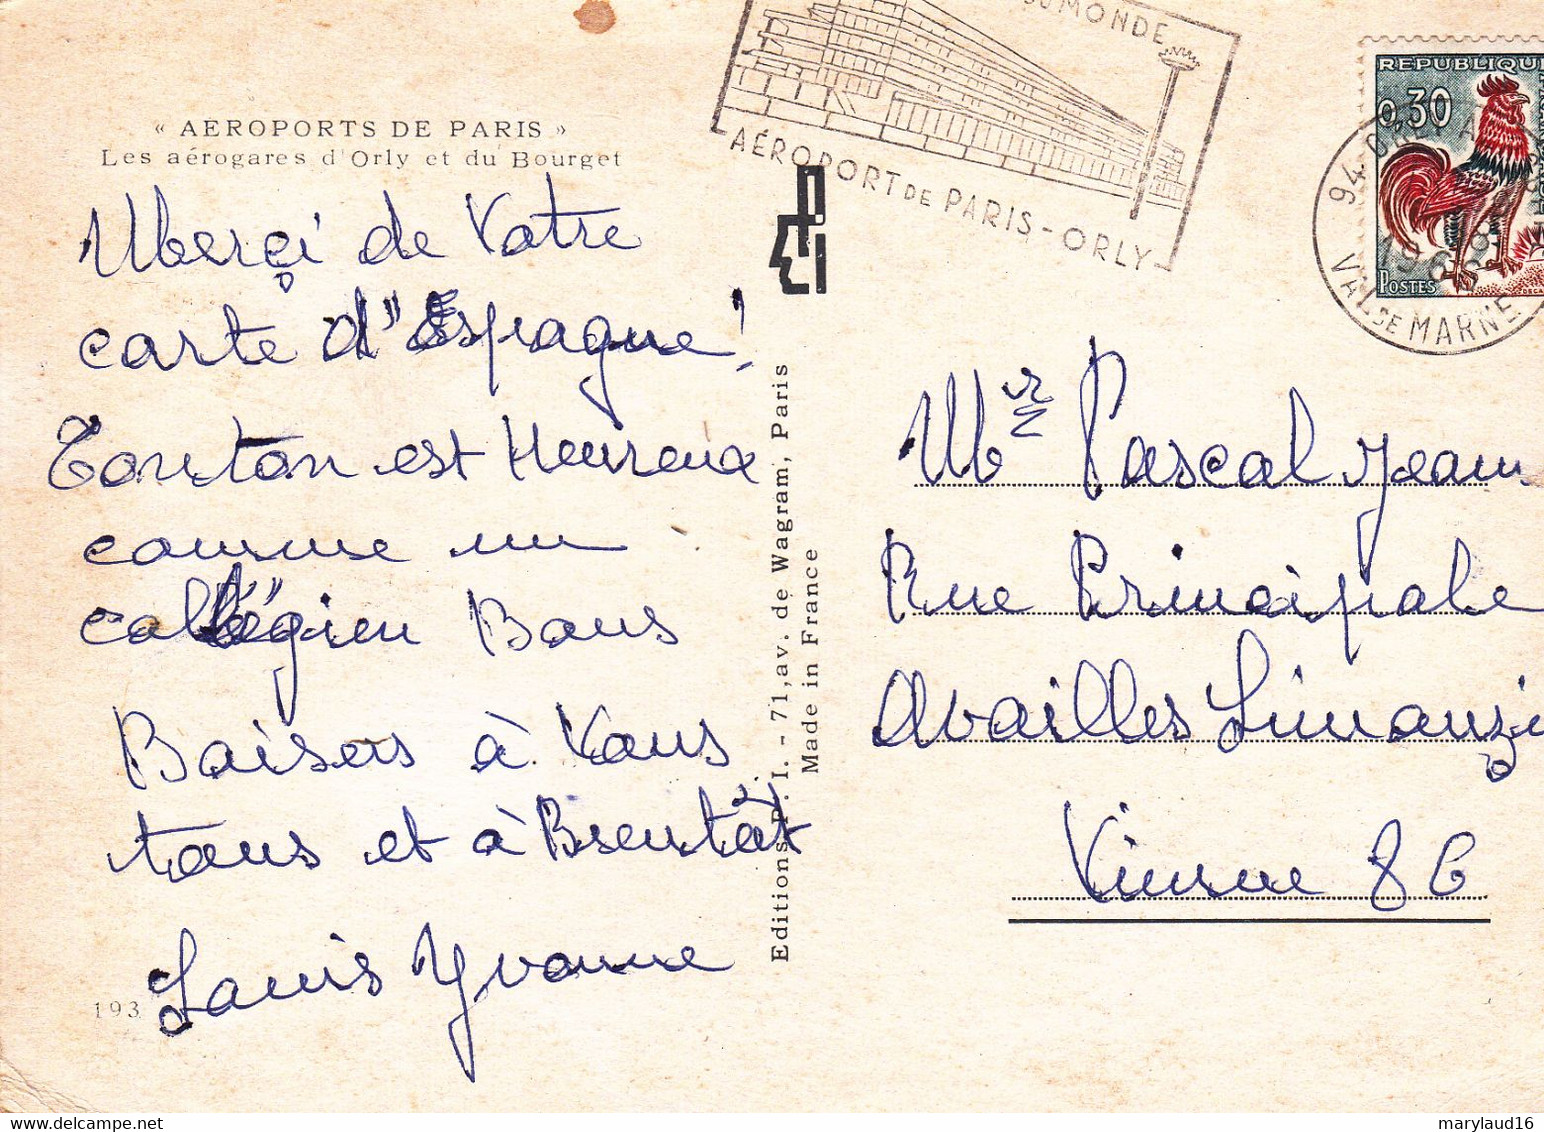 « AEROPORTS DE PARIS »
Les aérogares d'Orly et du Bourget
Merçi de Votre
carte d'Espagne!
Tonton est Heureux
comme un
collégien Bons
Baisers à Vous
tous et à Bientôt
Louis Yvonne
193
Editions P. I. - 71, av. de Wagram, Paris
Made in France
DU MONDE
AÉROPORT DE PARIS-ORLY
REPUBLIQUE
0,30
POSTES
94 ORLY
VAL DE MARNE
Mr Pascal Jean
Rue Principale
Availles Limouzi
Vienne 86
marylaud16